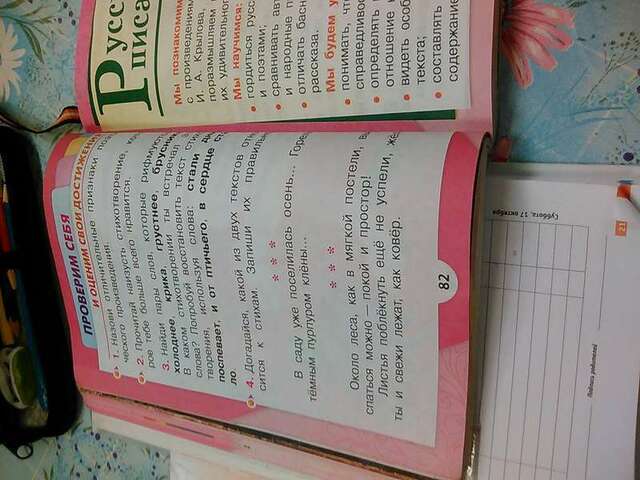 ПРОВЕРИМ СЕБЯ
И ОЦЕНИМ СВОИ ДОСТИЖЕН
1. Назови отличительные признаки поэ
ческого произведения.
2. Прочитай наизусть стихотворение, ко
рое тебе больше всего нравится.
3. Найди пары слов, которые рифмуют
холоднее, крика, грустнее, брусник
В каком стихотворении ты встречал э
слова? Попробуй восстановить текст сти
творения, используя слова: стали дн
поспевает, и от птичьего, в сердце ст
ло
4. Догадайся, какой из двух текстов отн
сится к стихам. Запиши их правильн
* * *
В саду уже поселилась осень... Горе
тёмным пурпуром клёны...
* * *
Около леса, как в мягкой постели, в
спаться можно — покой и простор!
Листья поблёкнуть ещё не успели, же
ты и свежи лежат, как ковёр.
82
Русс
писа
Мы познаком
с произведениям
И. А. Крылова,
поразмышляем
их удивительно
Мы научимся:
• гордиться русс
и поэтами;
• сравнивать авт
и народные п
• отличать басн
рассказа.
Мы будем у
• понимать, что
справедливос
• определять
отношение
• видеть особ
текста;
• составлять
содержание
Суббота, 17 октября
21
Подпись родителей